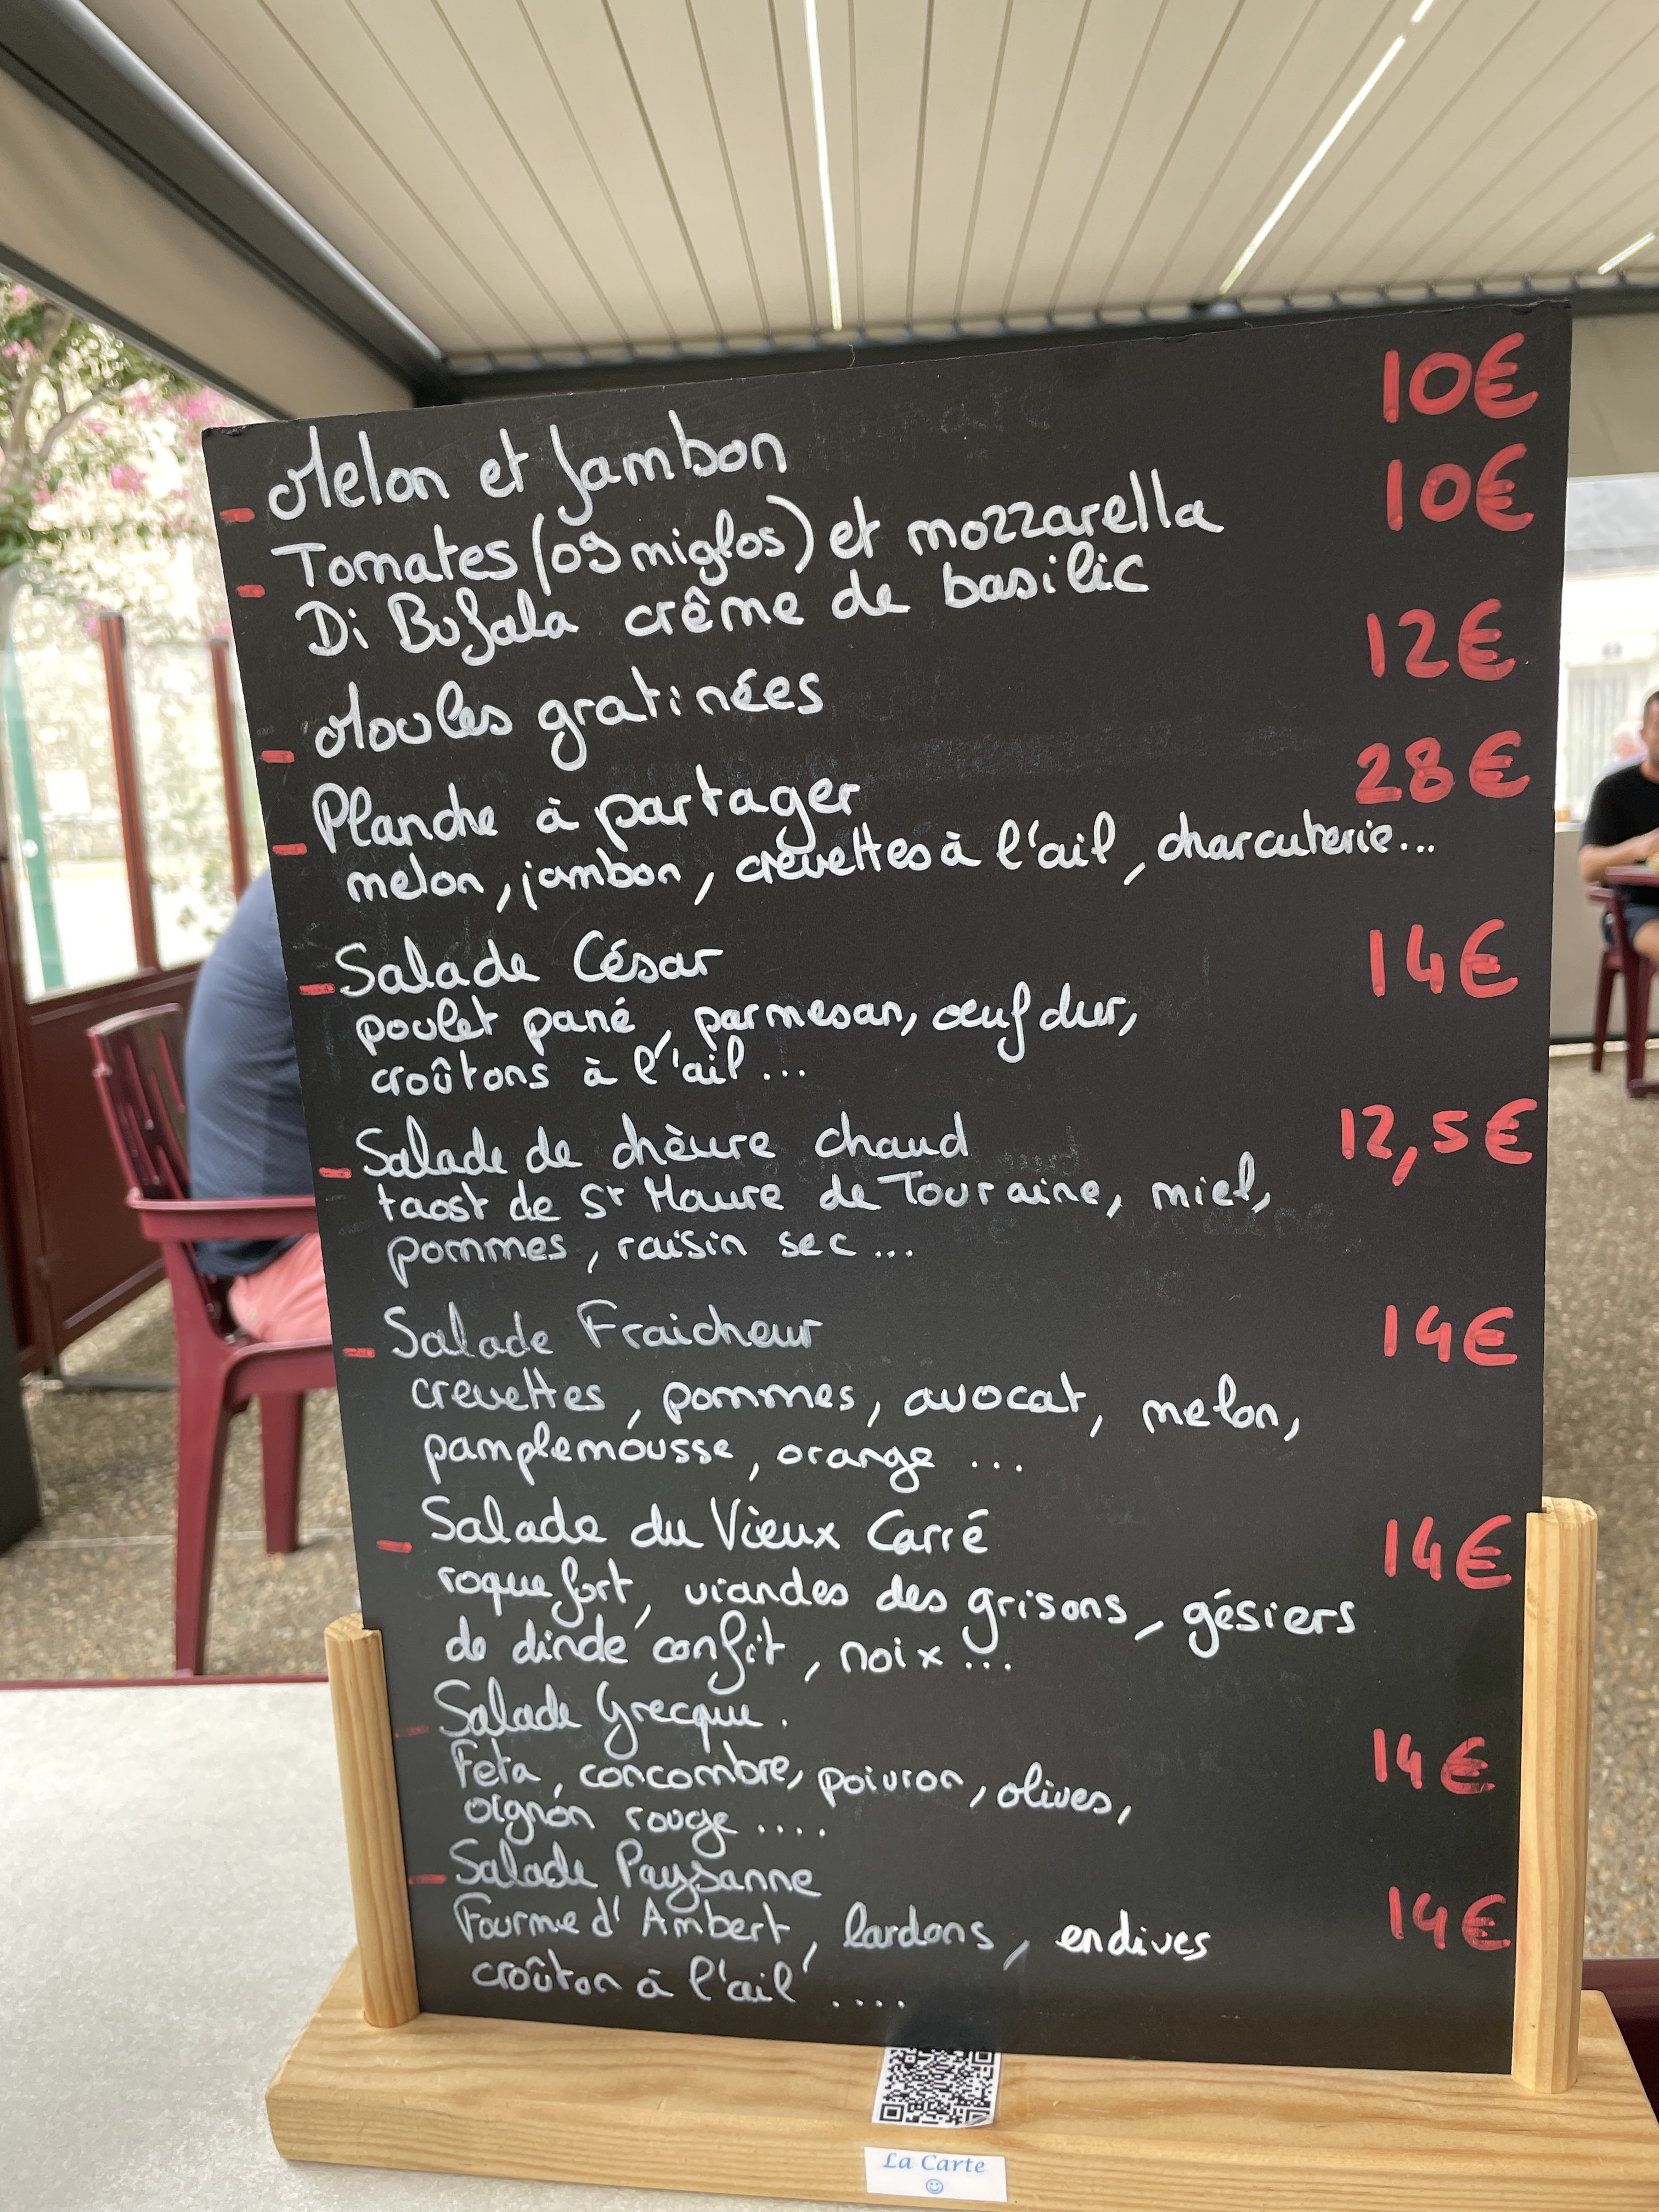 10€
- Melon et Jambon
10€
- Tomates (os miglos) et mozzarella
Di Bufala crême de basilic
12€
- Moules gratinées
28€
- Planche à partager
melon, jambon, crevettes à l'ail, charcuterie...
14€
- Salade César
poulet pané, parmesan, œuf dur,
croûtons à l'ail...
12,5€
- Salade de chèvre chaud
taost de St Maure de Touraine, miel,
pommes, raisin sec...
14€
- Salade Fraicheur
crevettes, pommes, avocat, melon,
pamplemousse, orange ...
14€
- Salade du Vieux Carré
roquefort, viandes des grisons, gésiers
de dinde confit, noix ...
- Salade Grecque.
14€
Feta, concombre, poivron, olives,
oignon rouge ....
- Salade Paysanne
14€
Fourme d'Ambert, lardons, endives
croûton à l'ail ....
La Carte